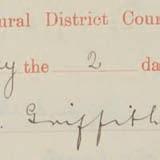 ural District Cour
y the 2 da
. Griffith